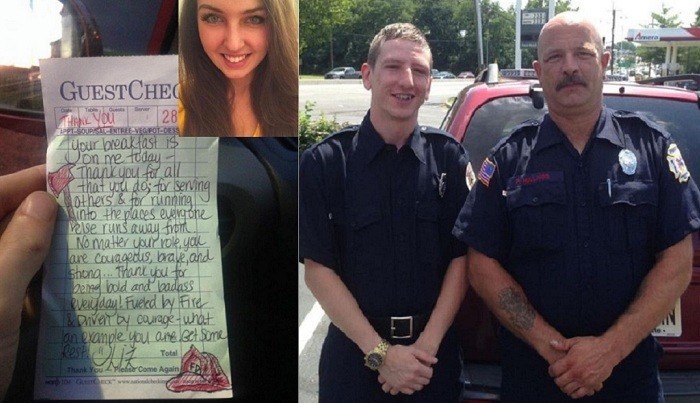 GUESTCHEC
Date Table Guests Server
THANK YOU 28
APPT-SOUP/SAL-ENTREE-VEG/POT-DES
Your breakfast is
on me today -
Thank you for all
that you do; for serving
others & for running
into the places everyone
else runs away from.
No matter your role, you
are courageous, brave, and
strong... Thank you for
being bold and badass
everyday! Fueled by Fire
& Driven by courage - what
an example you are. Get some
Rest!!! Liz
Total
FD
Thank You - Please Come Again
GUESTCHECK